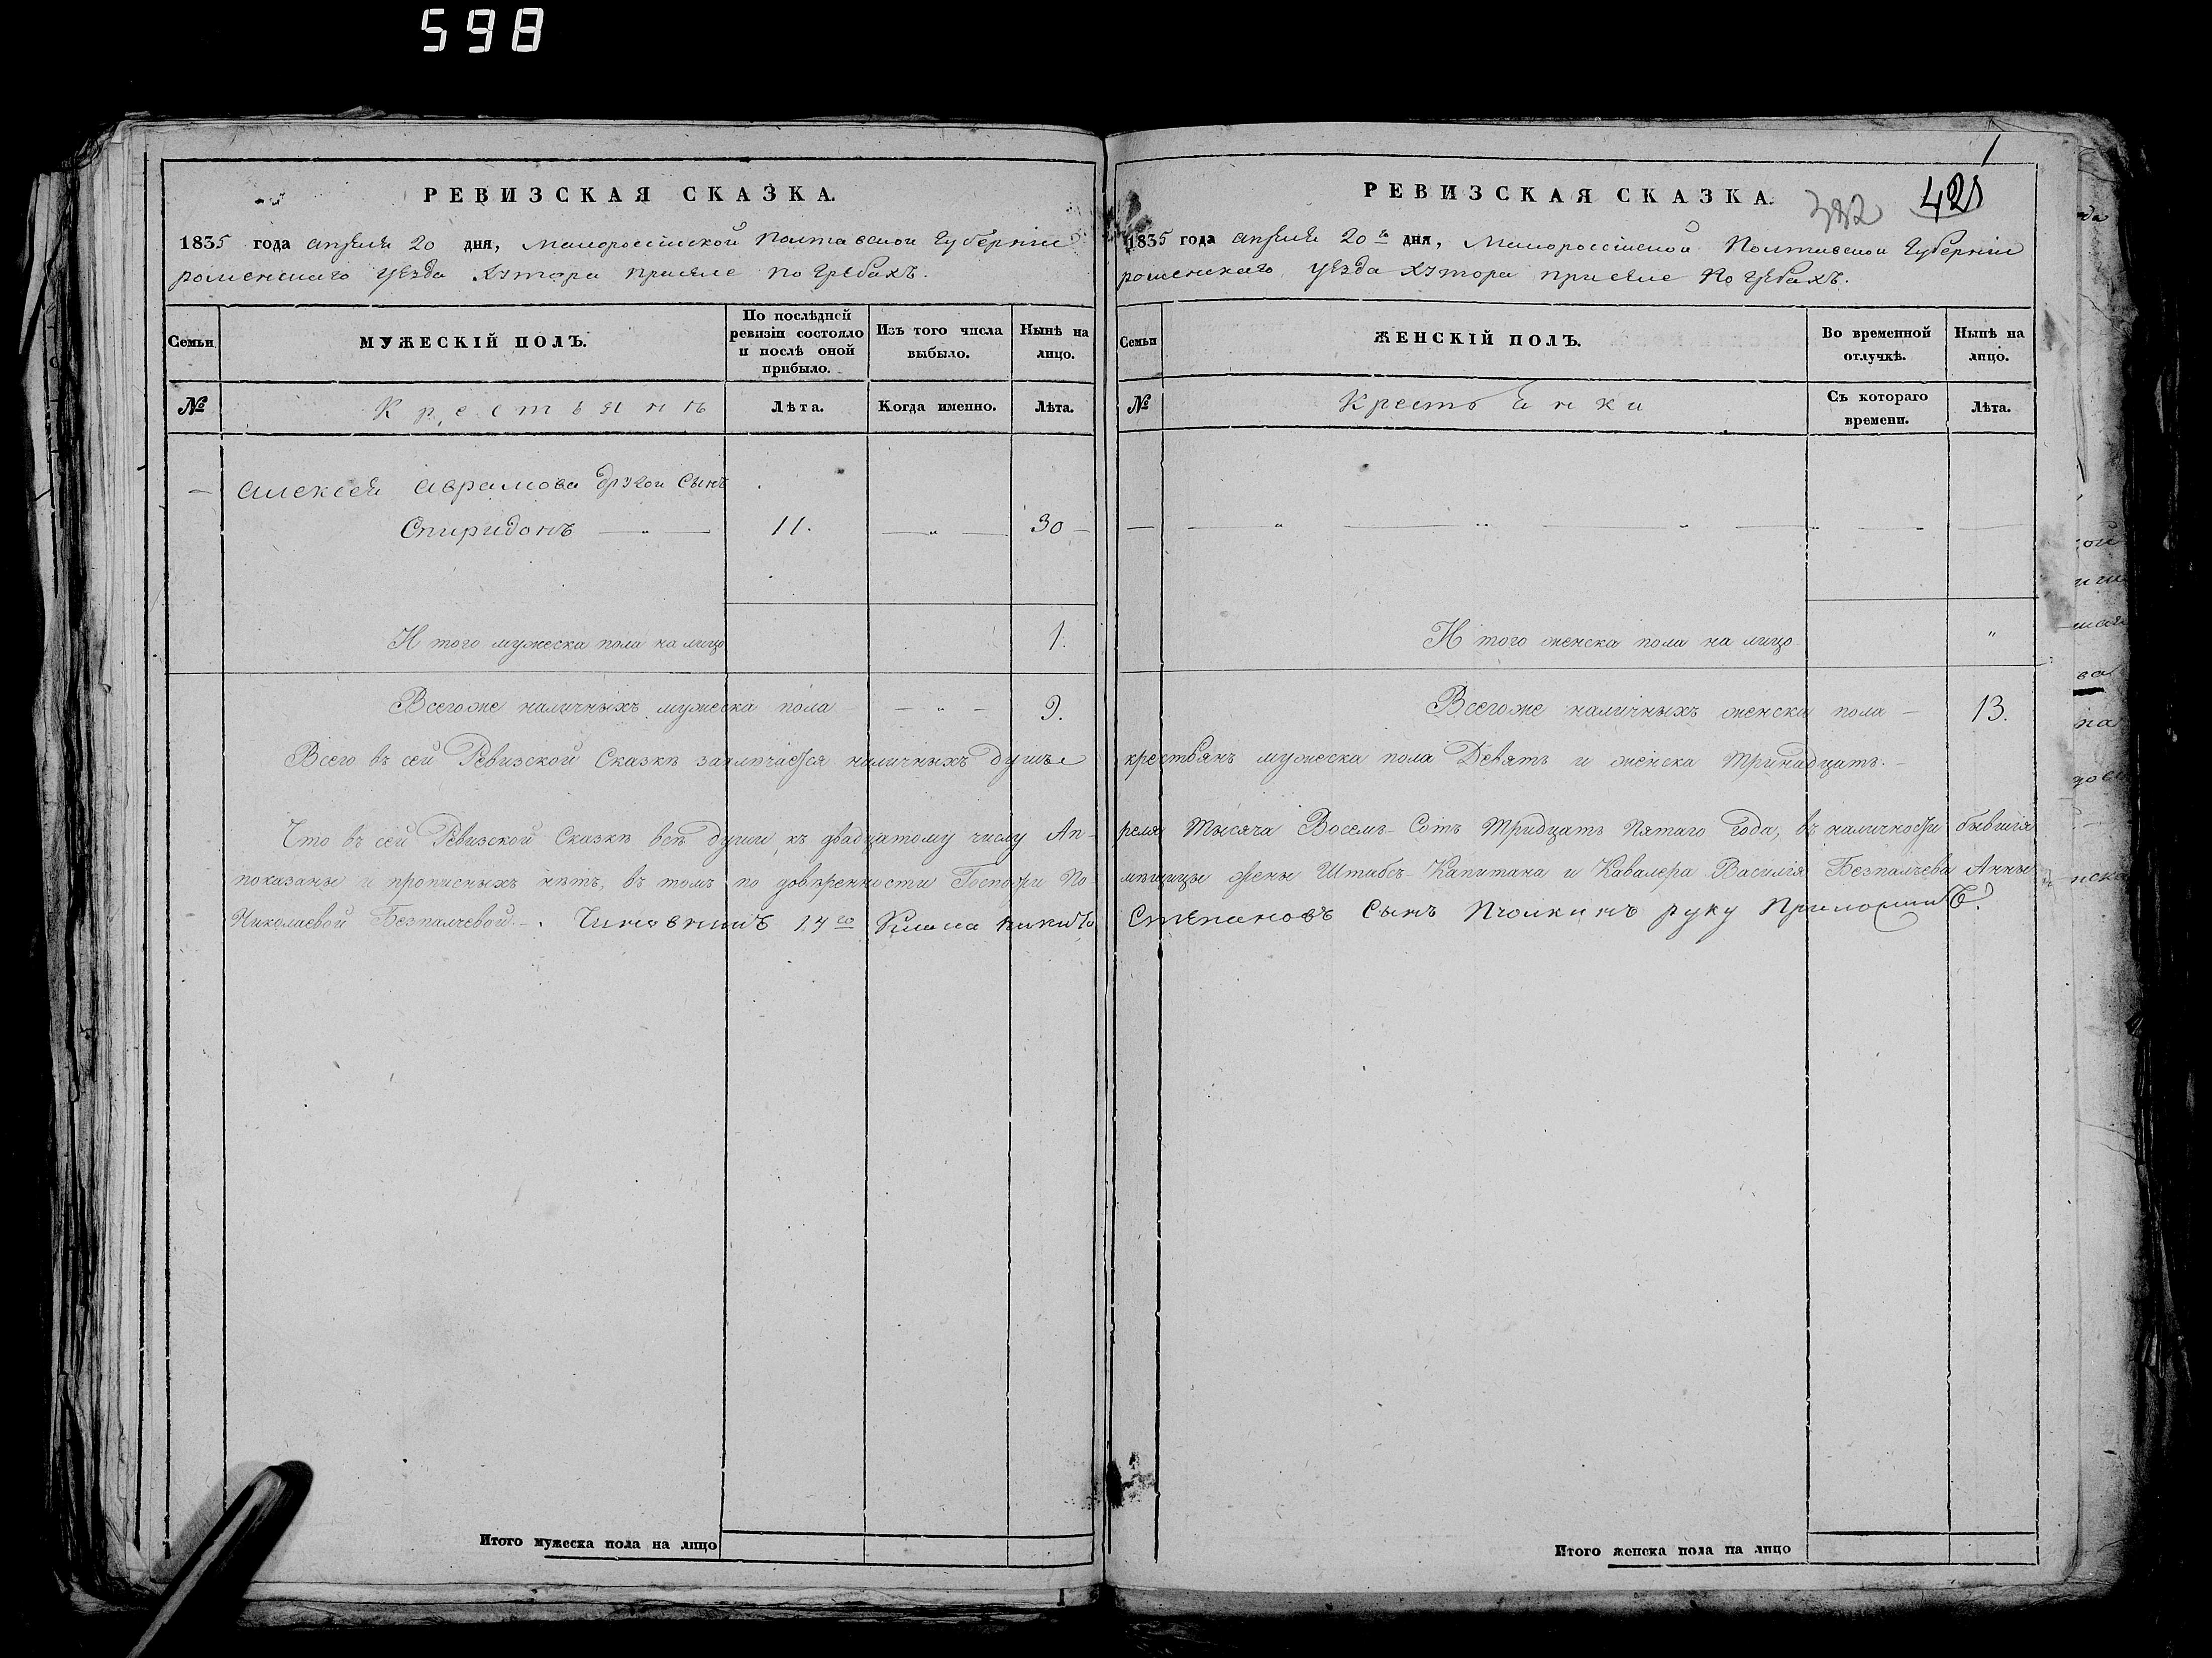 598
РЕВИЗСКАЯ СКАЗКА.
1835 года апреля 20 дня, Малороссійской Полтавской Губерніи
роменскаго уезда хутора присяле погребахъ.
Семьи
МУЖЕСКІЙ ПОЛЪ.
По послѣдней ревизіи состояло и послѣ оной прибыло.
Изъ того числа выбыло.
Нынѣ на лицо.
№
Крестьянъ
Лѣта.
Когда именно.
Лѣта.
— Алексея Аврамова другой Сынъ
Спиридонъ — „ — 11. — „ — 30 —
Итого мужеска пола на лицо 1.
Всегоже наличныхъ мужеска пола — „ — 9.
Всего въ сей Ревизской Сказкѣ заключается наличныхъ душъ
Что въ сей Ревизской Сказкѣ всѣ души къ двадцатому числу Ап-
показаны и прописныхъ нѣтъ, въ томъ по довѣренности Госпожи По
Николаевой Безпалчевой. — Чиновникъ 14го Класса
Итого мужеска пола на лицо
РЕВИЗСКАЯ СКАЗКА.
382
421
1835 года апреля 20го дня, Малороссійской Полтавской Губерніи
роменскаго уезда хутора присяле погребахъ.
Семьи
ЖЕНСКІЙ ПОЛЪ.
Во временной отлучкѣ.
Нынѣ на лицо.
№
Крестьянки
Съ котораго времени.
Лѣта.
Итого женска пола на лицо „
Всегоже наличныхъ женска пола — 13.
крестьянъ мужеска пола Девять и женска тринадцать. —
реля Тысяча Восемь Сотъ Тридцать Пятаго года, въ наличности бывшія
мѣщицы жены Штабсъ-Капитана и Кавалера Василія Безпалчева Анны
Степановъ Сынъ Пчолкинъ руку Приложилъ.
Итого женска пола на лицо